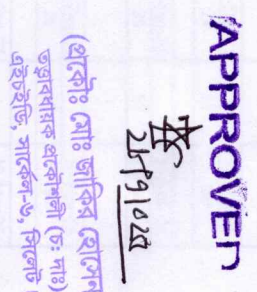 APPROVED
(প্রকৌঃ মোঃ জাকির হোসেন
তত্ত্বাবধায়ক প্রকৌশলী (চঃ দাঃ)
এইচইডি, সার্কেল-৬, সিলেট